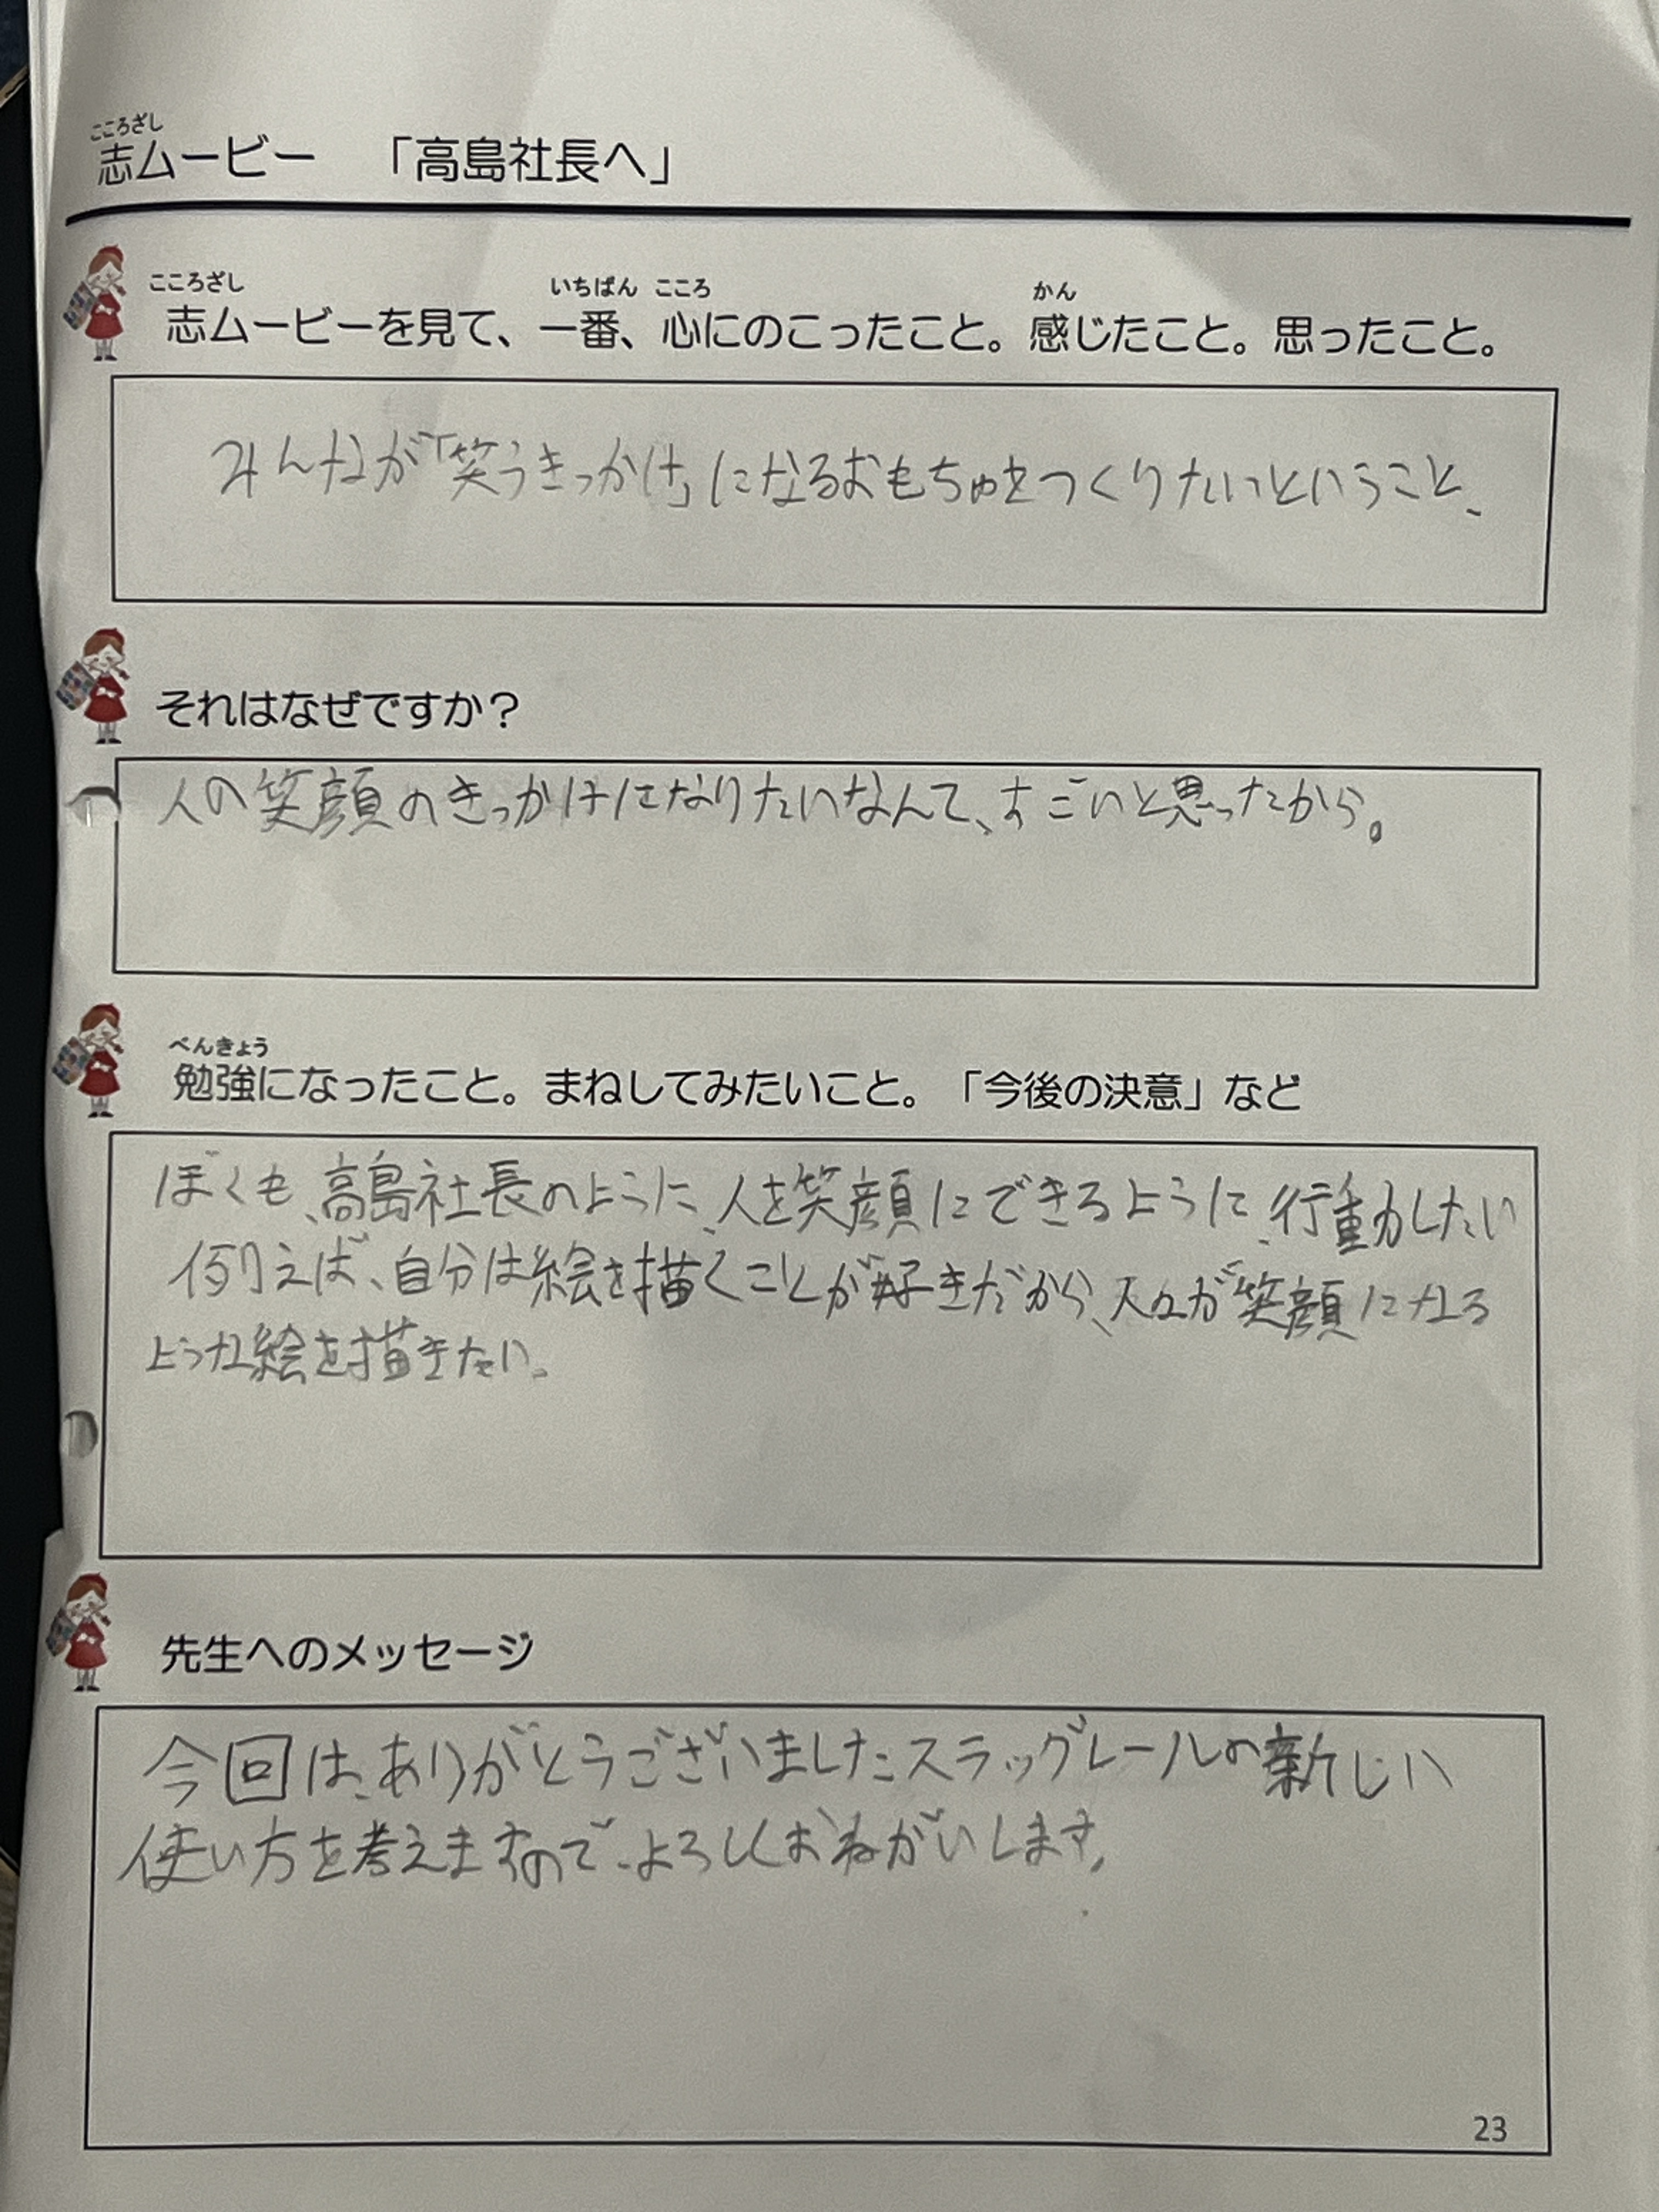 こころざし
志ムービー 「高島社長へ」
こころざし いちばん こころ かん
志ムービーを見て、一番、心にのこったこと。感じたこと。思ったこと。
みんなが「笑うきっかけ」になるおもちゃをつくりたいということ、
それはなぜですか？
人の笑顔のきっかけになりたいなんて、すごいと思ったから。
べんきょう
勉強になったこと。まねしてみたいこと。「今後の決意」など
ぼくも、高島社長のように、人を笑顔にできるように、行動したい
例えば、自分は絵を描くことが好きだから、人々が笑顔になる
ような絵を描きたい。
先生へのメッセージ
今回は、ありがとうございましたスラッグレールの新しい
使い方を考えますので、よろしくおねがいします。
23